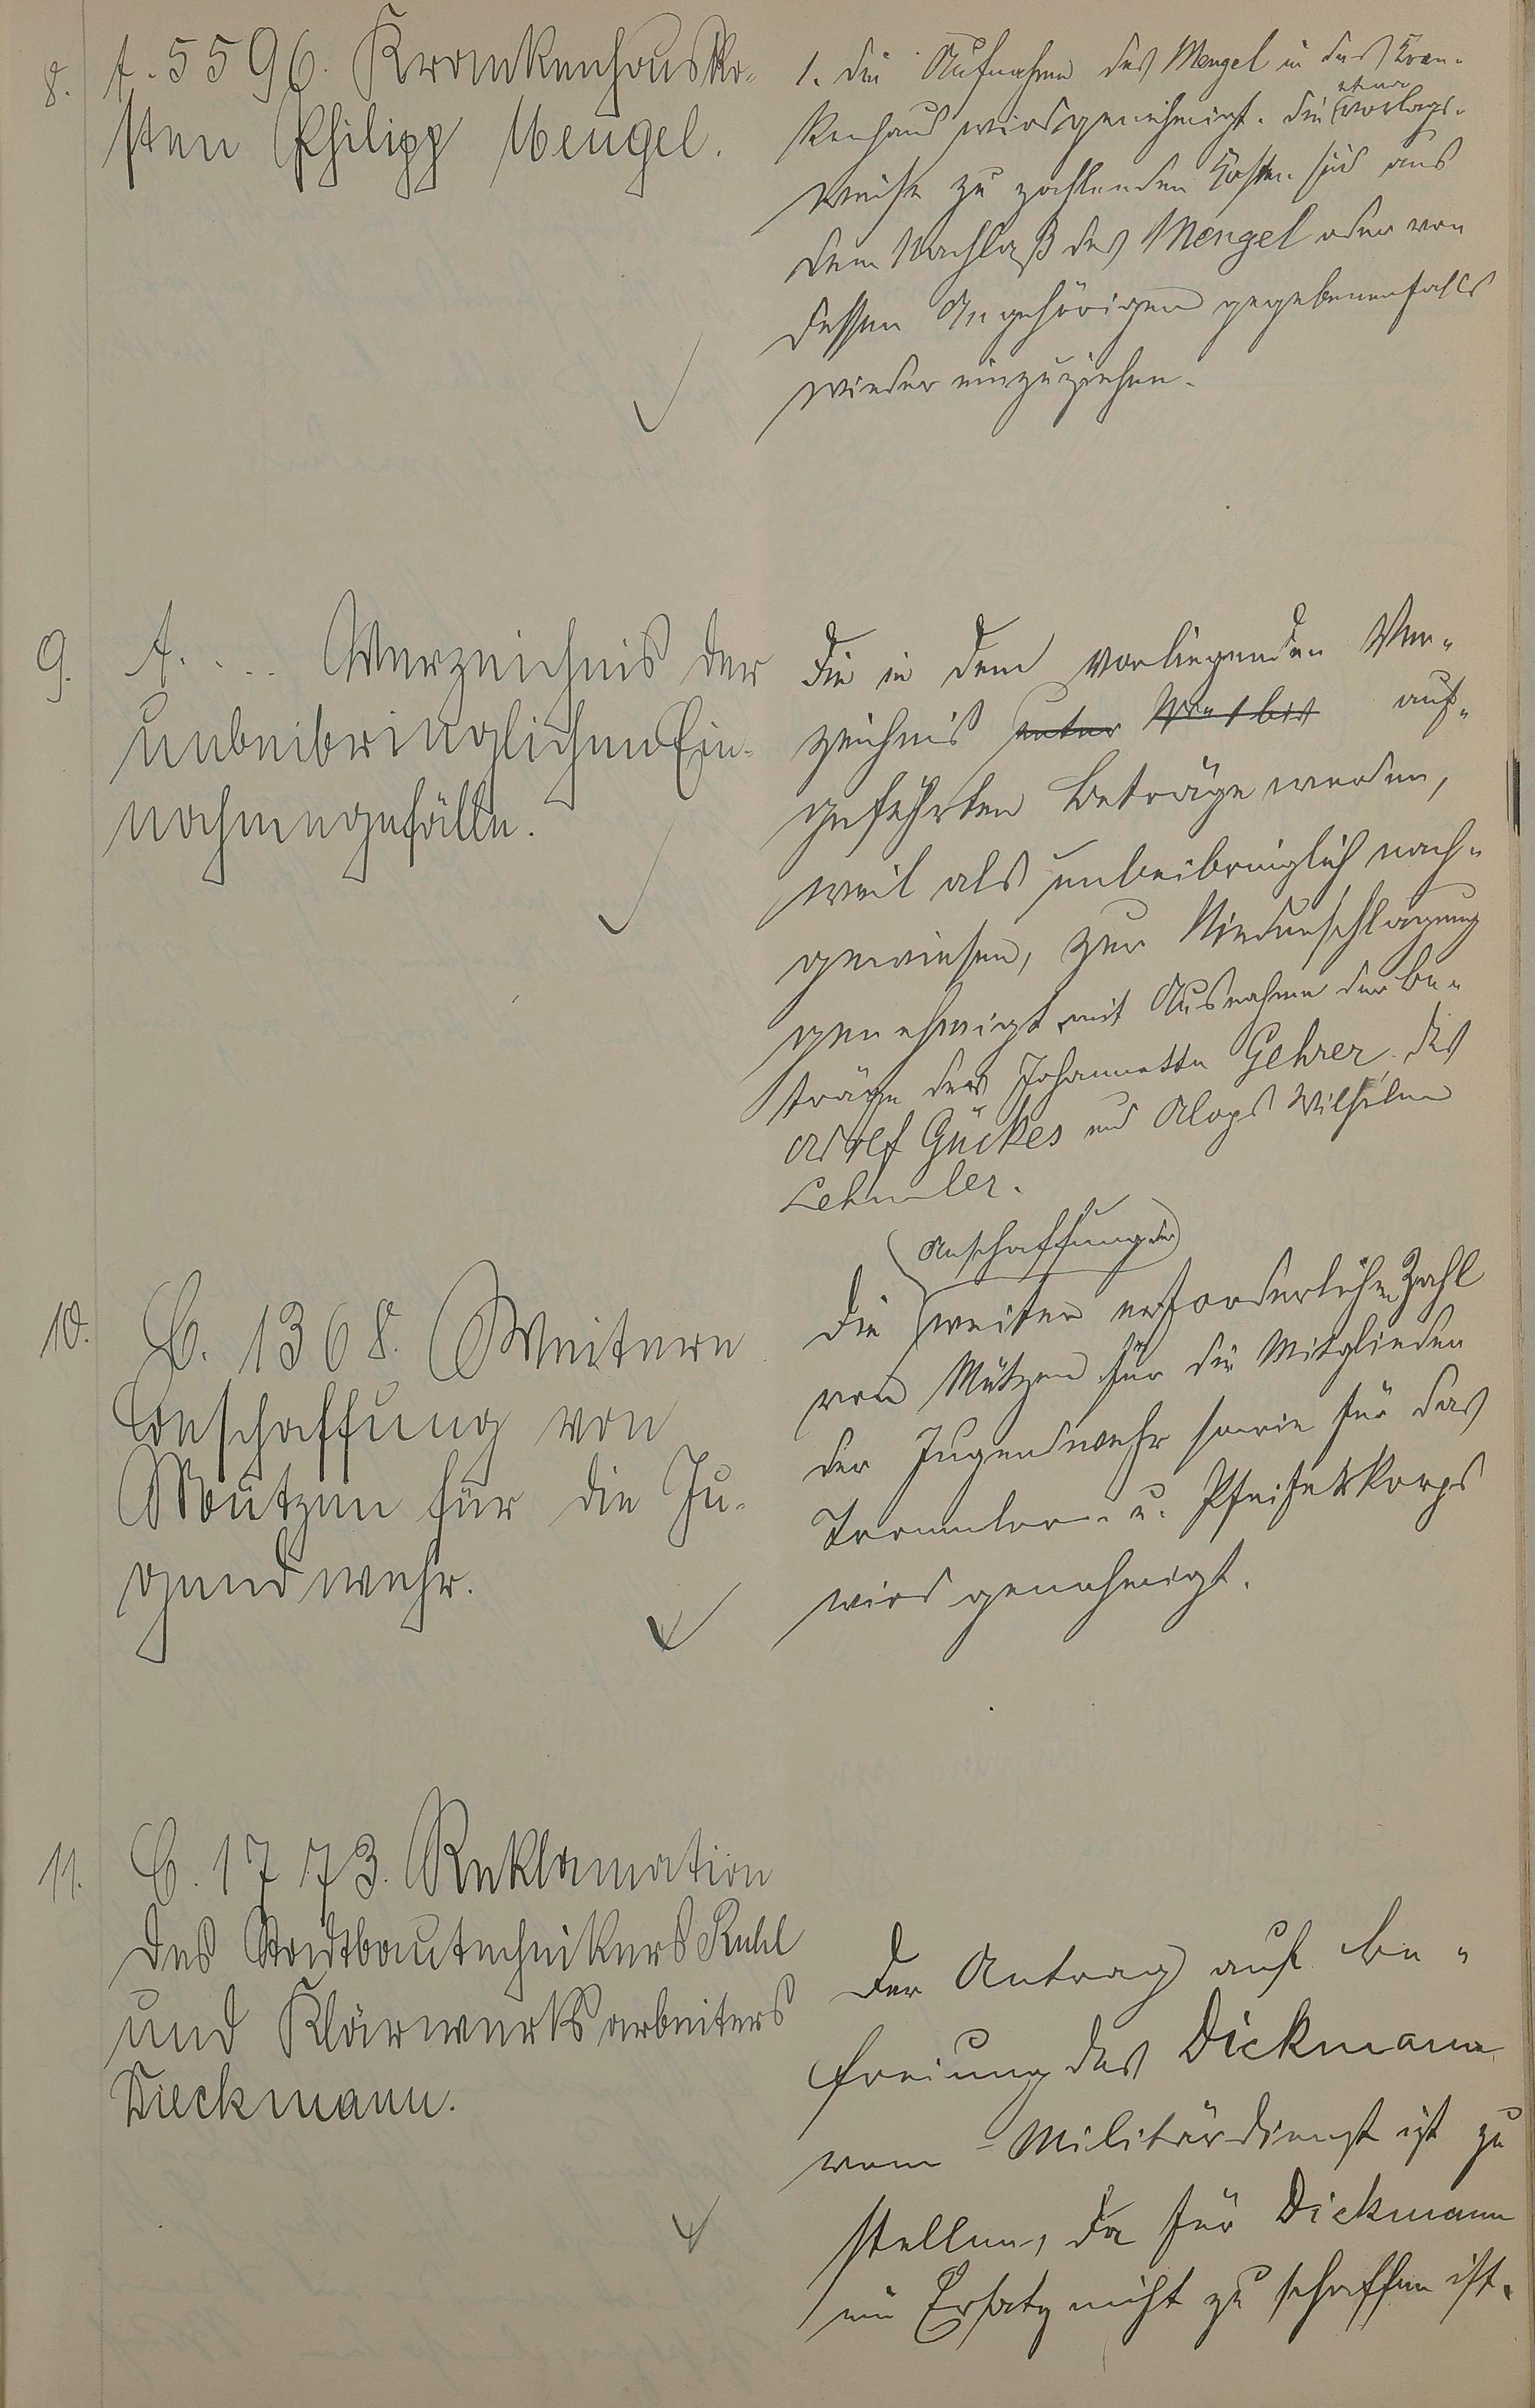 8. A. 5596. Krankenhausko-
sten Philipp Mengel.
1. Die Aufnahme des Mengel in das Kran-
kenhaus wird genehmigt. Die etwa vorlags-
weise zu zahlenden Kosten sind aus
dem Nachlaß des Mengel oder von
dessen Angehörigen gegebenenfalls
wieder einzuziehen.
9. A. ... Verzeichnis der
unbeibringlichen Ein-
nahmegefälle.
Die in dem vorliegenden Ver-
zeichnis unter No 1 bis auf-
geführten Beträge werden,
weil als unbeibringlich nach-
gewiesen, zur Niederschlagung
genehmigt mit Ausnahme der Be-
träge der Johannette Gehrer, des
Adolf Gückes und Aloys Wilhelm
Lehmler.
10. C. 1368. Weitere
Anschaffung von
Mützen für die Ju-
gendwehr.
Die Anschaffung der weiter erforderlichen Zahl
von Mützen für die Mitglieder
der Jugendwehr sowie für das
Trommler- u. Pfeiferkorps
wird genehmigt.
11. C. 1773. Reklamation
des Stadtbautechnikers Ruhl
und Klärwerksarbeiters
Dieckmann.
Der Antrag auf Be-
freiung des Dickmann
vom Militärdienst ist zu
stellen, da für Dickmann
ein Ersatz nicht zu schaffen ist.